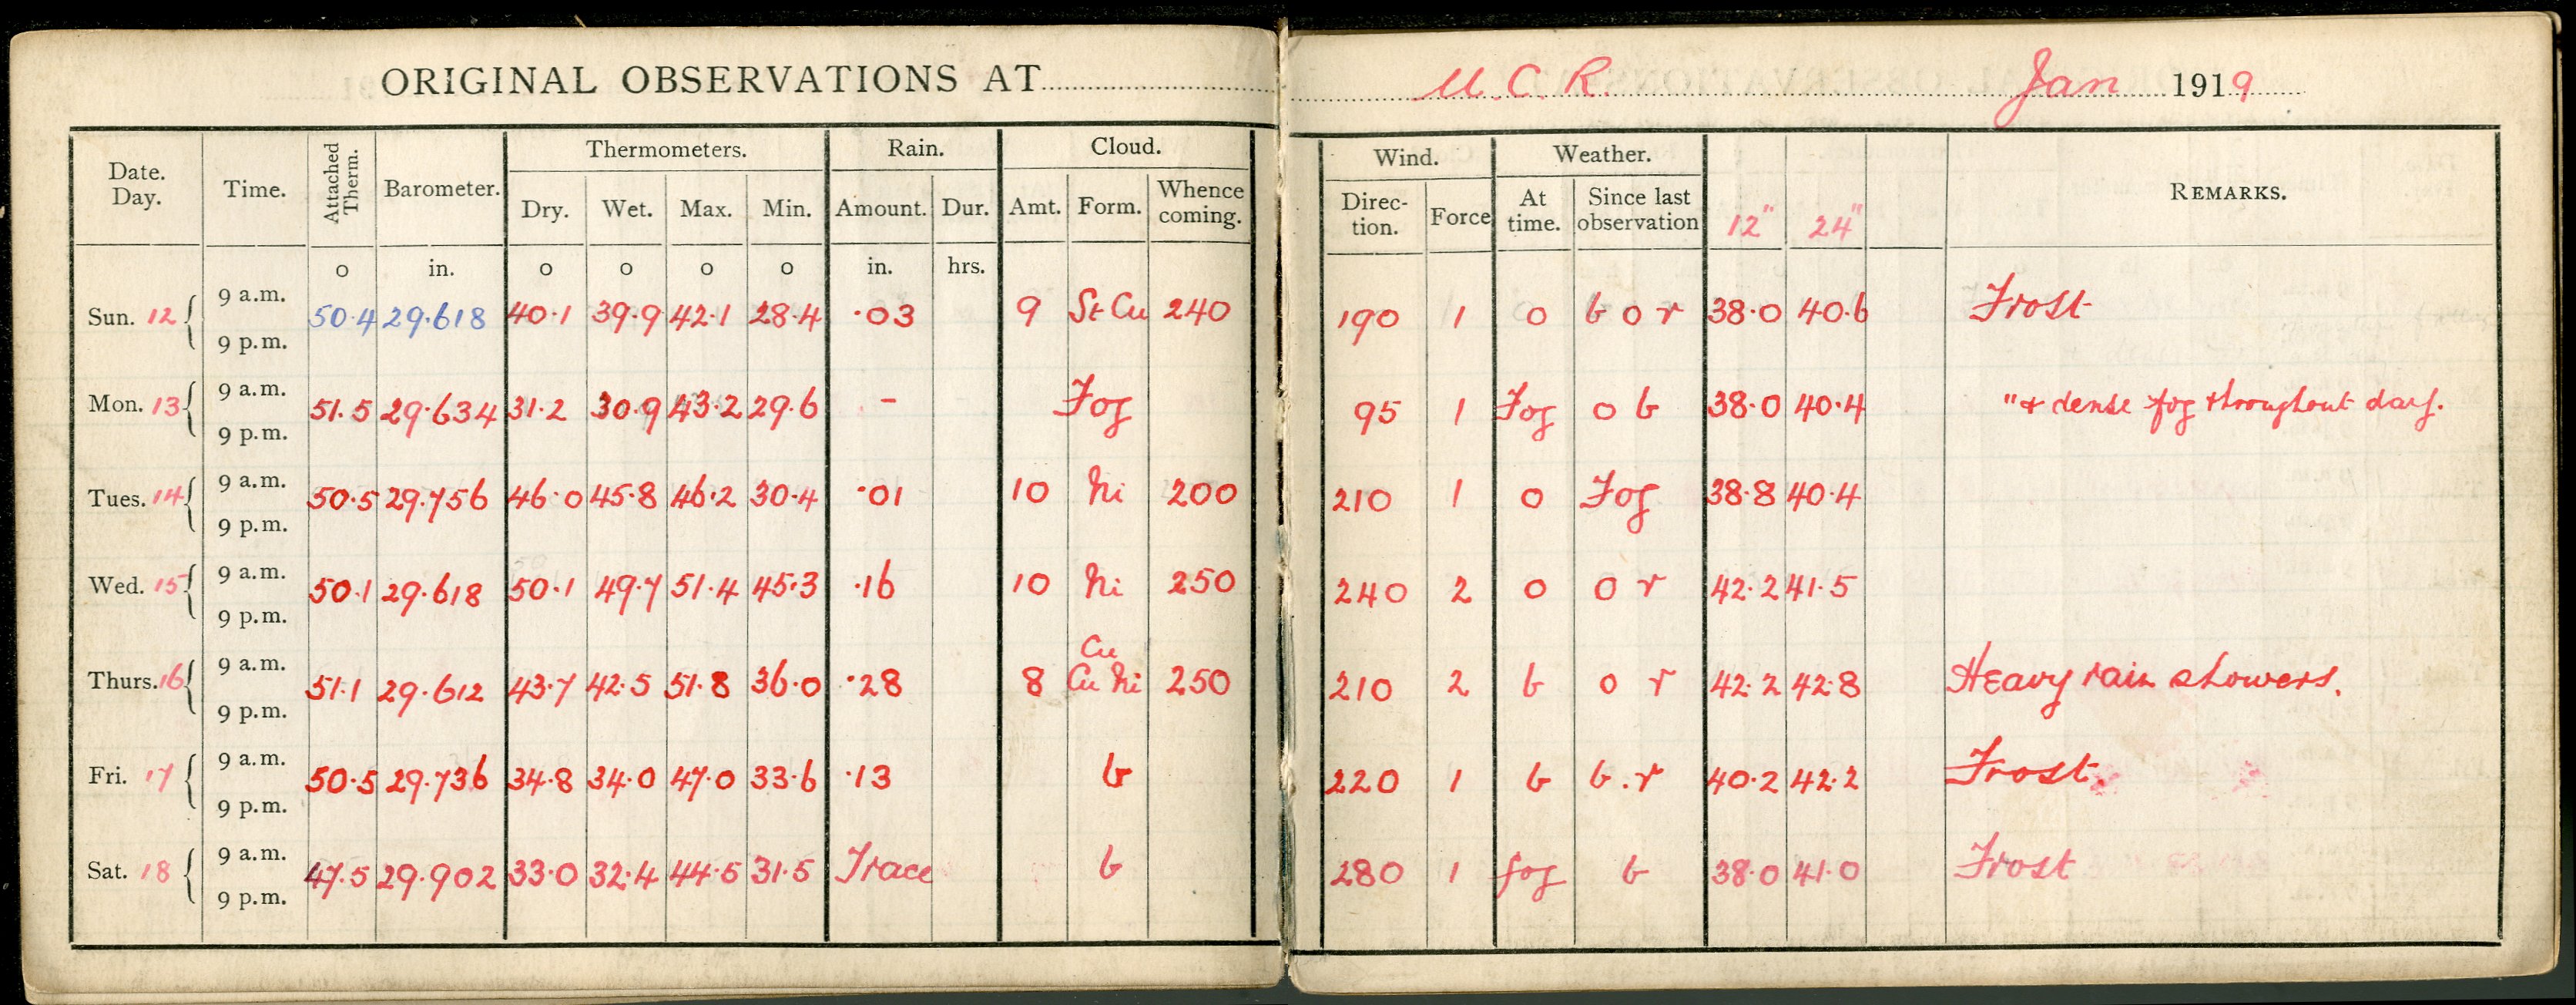 ORIGINAL OBSERVATIONS AT M. C. R. Jan 1919
Date. Day. Time. Attached Therm. Barometer. Thermometers. Rain. Cloud. Wind. Weather. 12" 24" REMARKS.
Dry. Wet. Max. Min. Amount. Dur. Amt. Form. Whence coming. Direc-tion. Force At time. Since last observation
o in. o o o o in. hrs.
Sun. 12 9 a.m. 50.4 29.618 40.1 39.9 42.1 28.4 .03 9 St Cu 240 190 1 o b o r 38.0 40.6 Frost
9 p.m.
Mon. 13 9 a.m. 51.5 29.634 31.2 30.9 43.2 29.6 - Fog 95 1 Fog o b 38.0 40.4 " & dense fog throughout day.
9 p.m.
Tues. 14 9 a.m. 50.5 29.756 46.0 45.8 46.2 30.4 .01 10 Ni 200 210 1 o Fog 38.8 40.4
9 p.m.
Wed. 15 9 a.m. 50.1 29.618 50.1 49.7 51.4 45.3 .16 10 Ni 250 240 2 o o r 42.2 41.5
9 p.m.
Thurs. 16 9 a.m. 51.1 29.612 43.7 42.5 51.8 36.0 .28 8 Cu Cu Ni 250 210 2 b o r 42.2 42.8 Heavy rain showers.
9 p.m.
Fri. 17 9 a.m. 50.5 29.736 34.8 34.0 47.0 33.6 .13 b 220 1 b b.r 40.2 42.2 Frost.
9 p.m.
Sat. 18 9 a.m. 47.5 29.902 33.0 32.4 44.5 31.5 Trace b 280 1 fog b 38.0 41.0 Frost
9 p.m.